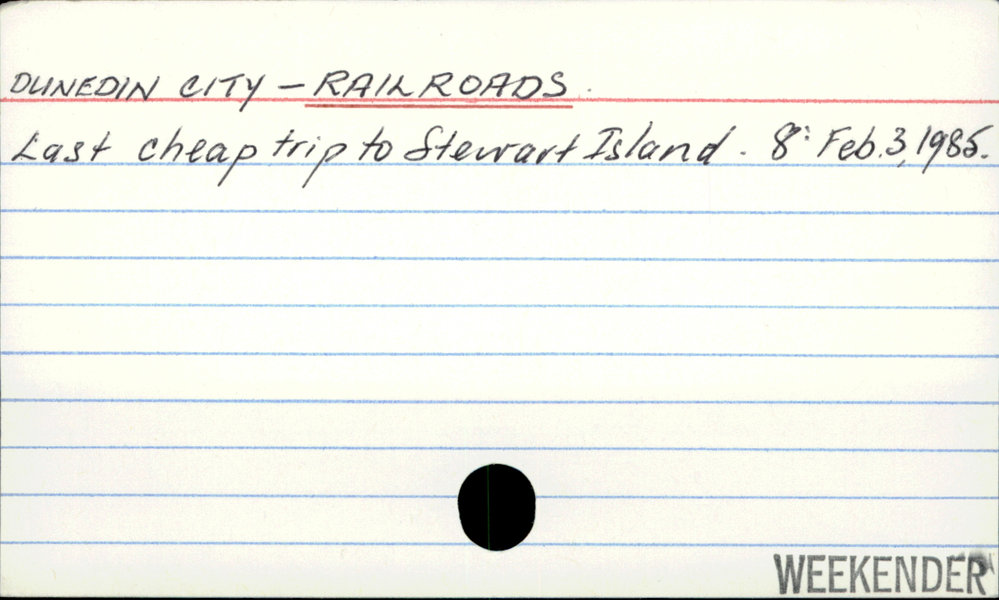 DUNEDIN CITY – RAILROADS.
Last cheap trip to Stewart Island. 8: Feb. 3, 1985.
WEEKENDER